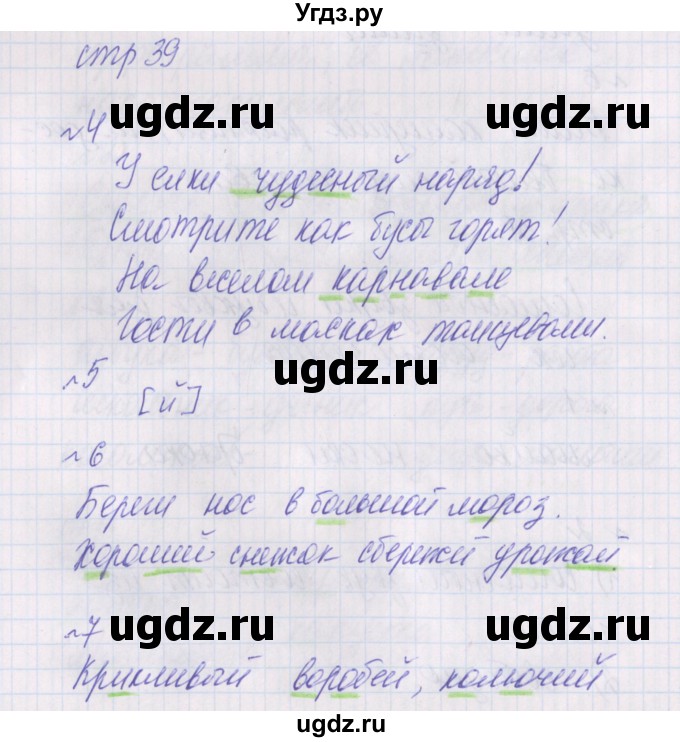 Угдз.ру
стр 39
ugdz.ru ugdz.ru
№4
У елки чудесный наряд!
ugdz.ru ugdz.ru
Смотрите как бусы горят!
На веселом карнавале
Гости в масках танцевали.
ugdz.ru
№5
[й]
ugdz.ru ugdz.ru
№6
Береги нос в большой мороз.
ugdz.ru ugdz.ru
Хороший снежок сбережет урожай
№7
ugdz.ru ugdz.ru
Крикливый воробей, колючий
ugdz.ru